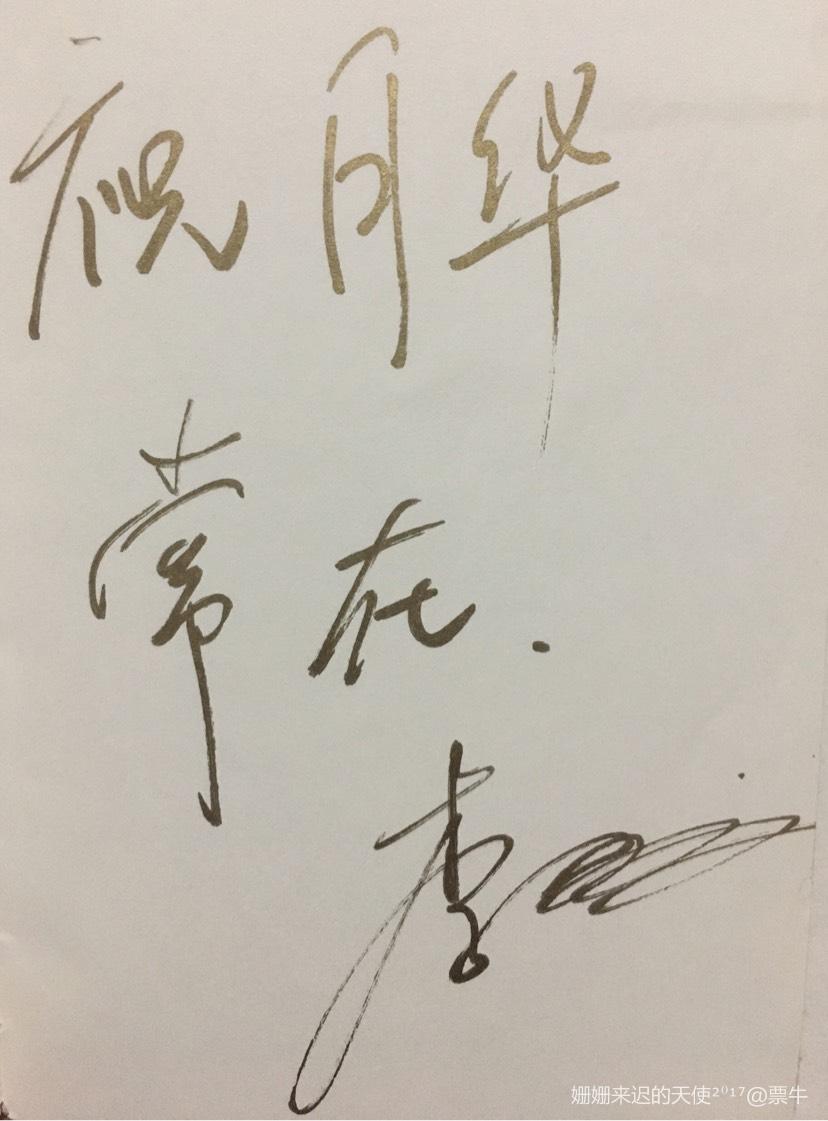 祝月华
常在.
李
姗姗来迟的天使²⁰¹⁷@票牛